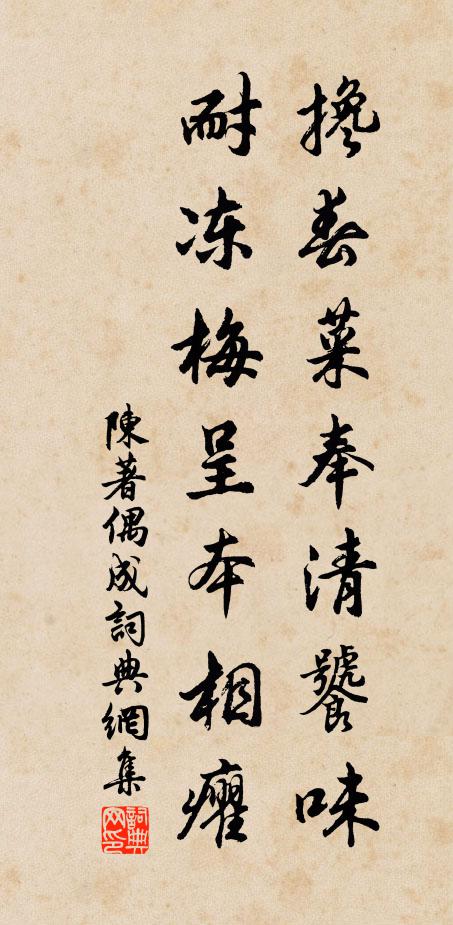 搀春菜奉清饕味
耐冻梅呈本相癯
陳著偶成詞典網集
詞典网印